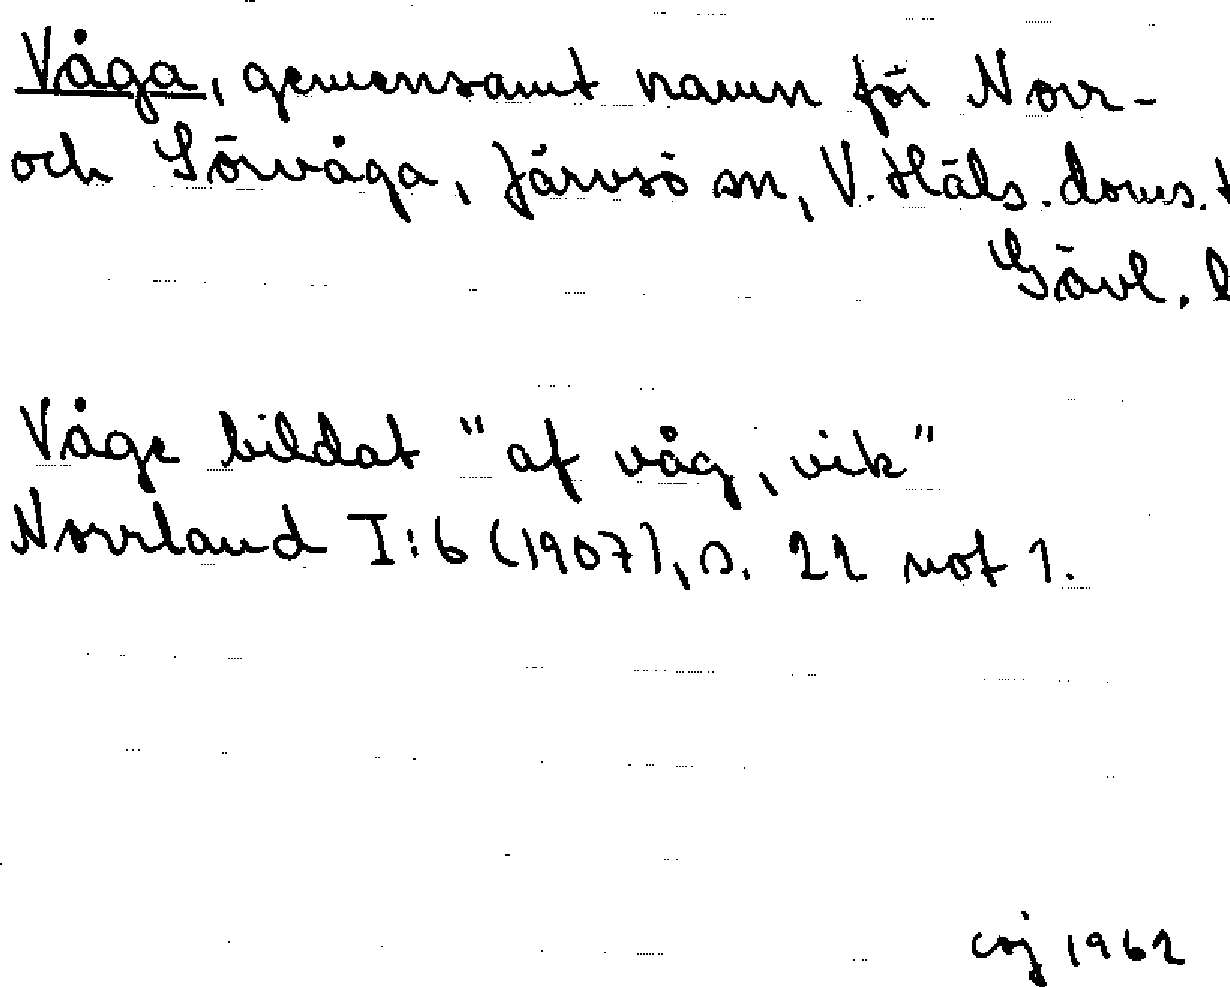 Våga, gemensamt namn för Norr-
och Sörvåga, Järvsö sn, V. Häls. doms.
Gävl.
Våge bildat "af våg, vik"
Norrland I:6 (1907), s. 22 not 1.
coj 1962